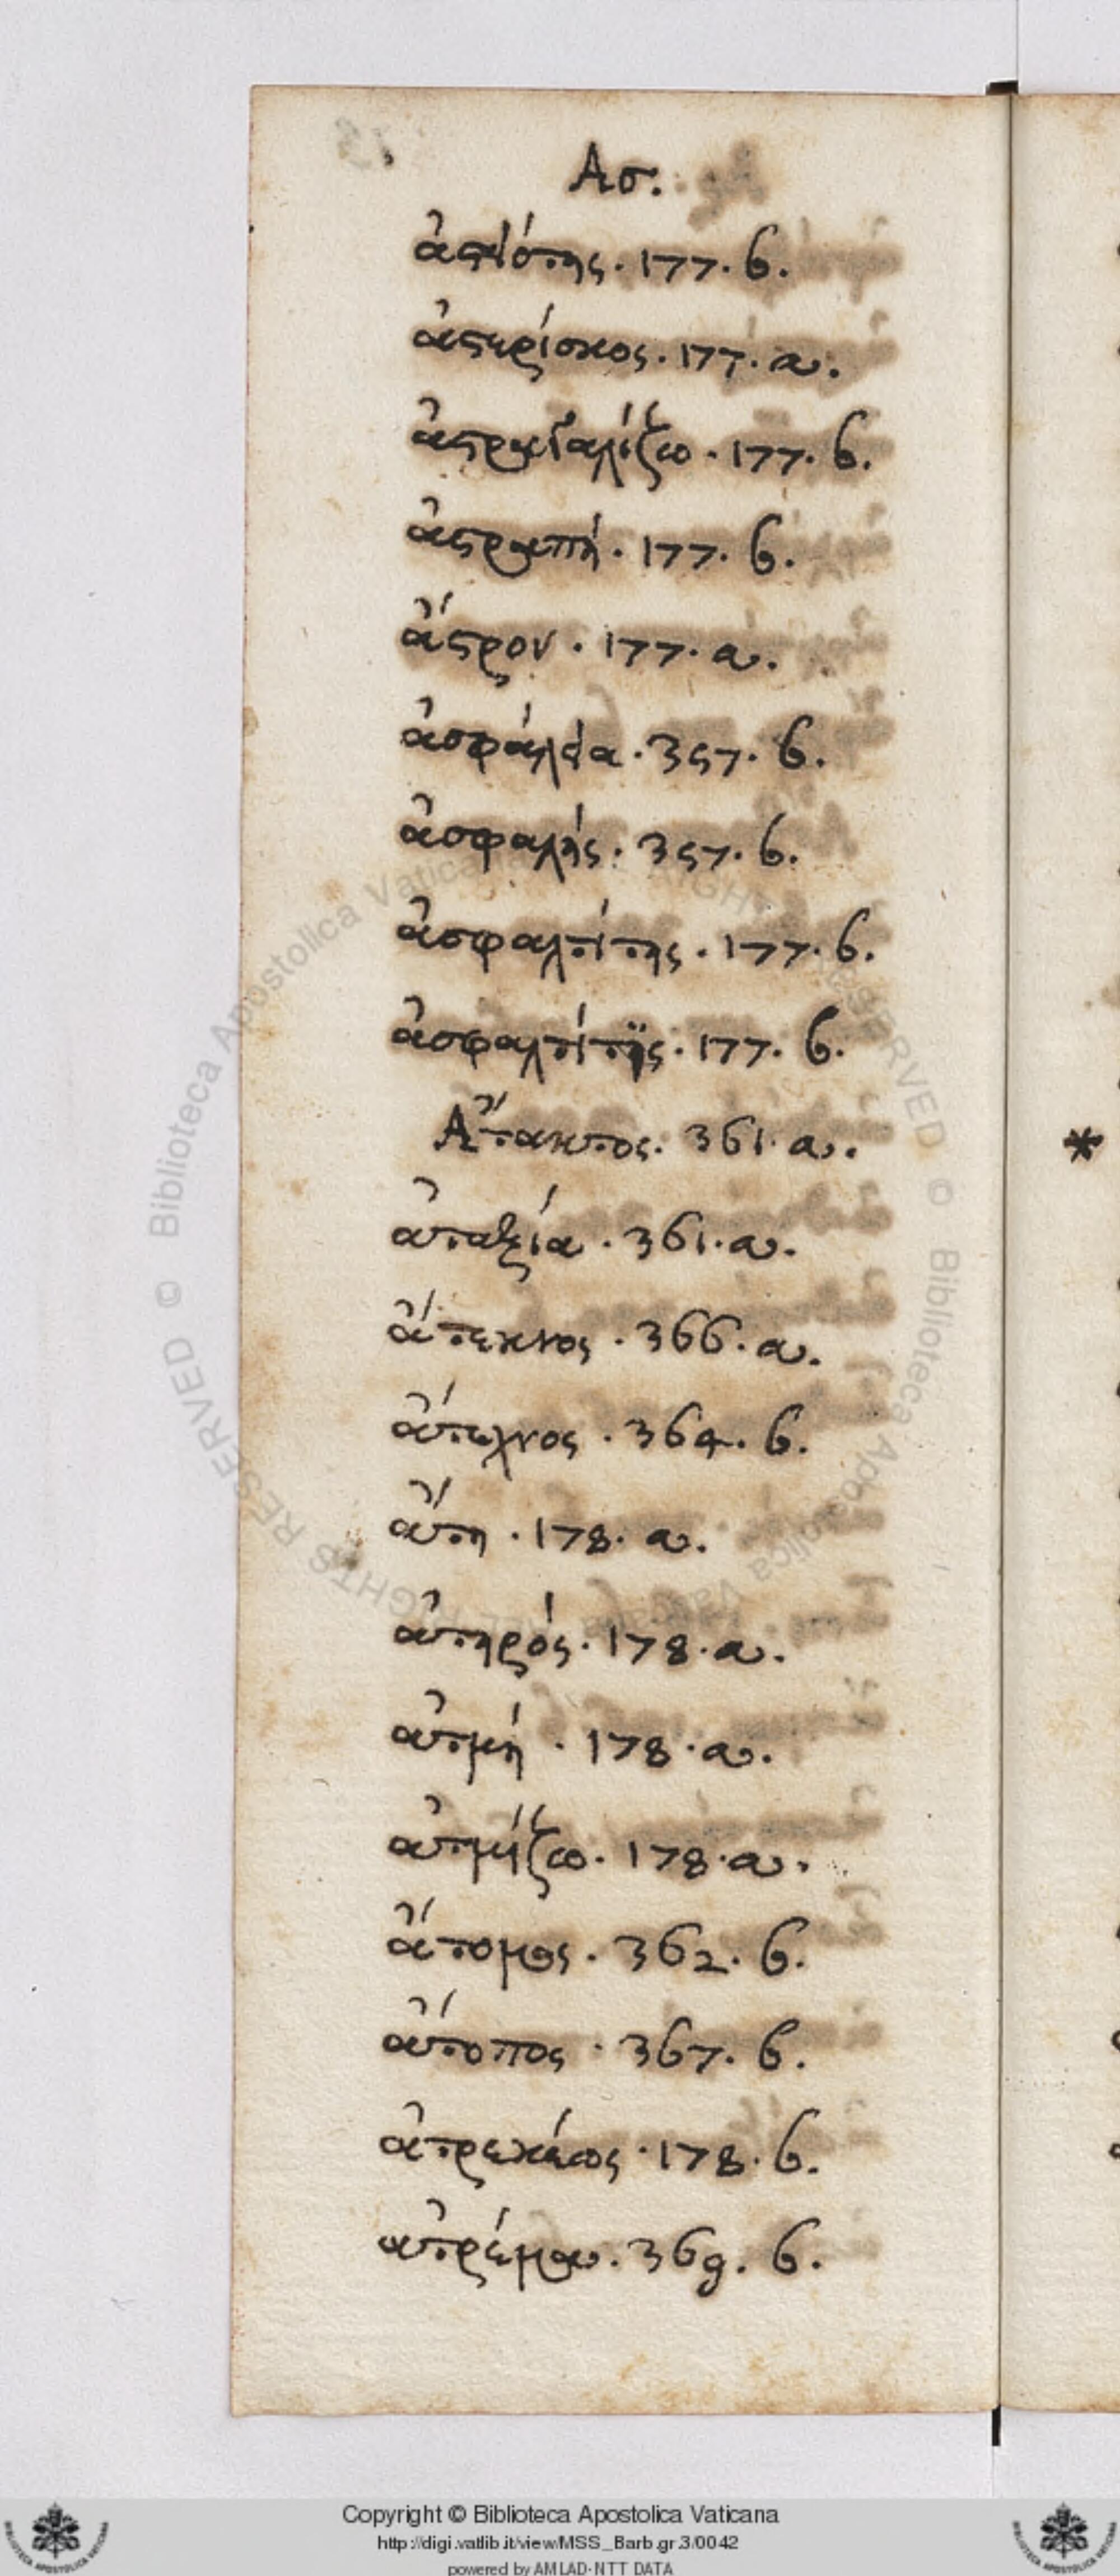 Ασ.
ἀστειότης. 177. b.
ἀστερίσκος. 177. a.
ἀστραγαλίζω. 177. b.
ἀστραπή. 177. b.
ἄστρον. 177. a.
ἀσφάλεια. 357. b.
ἀσφαλής. 357. b.
ἀσφαλτίτης. 177. b.
ἀσφαλτίτις. 177. b.
Ἄτακτος. 361. a.
ἀταξία. 361. a.
ἄτεκνος. 366. a.
ἄτεχνος. 364. b.
ἄτη. 178. a.
ἀτηρός. 178. a.
ἀτμή. 178. a.
ἀτμίζω. 178. a.
ἄτομος. 362. b.
ἄτοπος. 367. b.
ἀτρεκέως. 178. b.
ἀτρέμα. 369. b.
*
© Biblioteca Apostolica Vaticana
ALL RIGHTS RESERVED
Copyright © Biblioteca Apostolica Vaticana
http://digi.vatlib.it/view/MSS_Barb.gr.3/0042
powered by AMLAD-NTT DATA